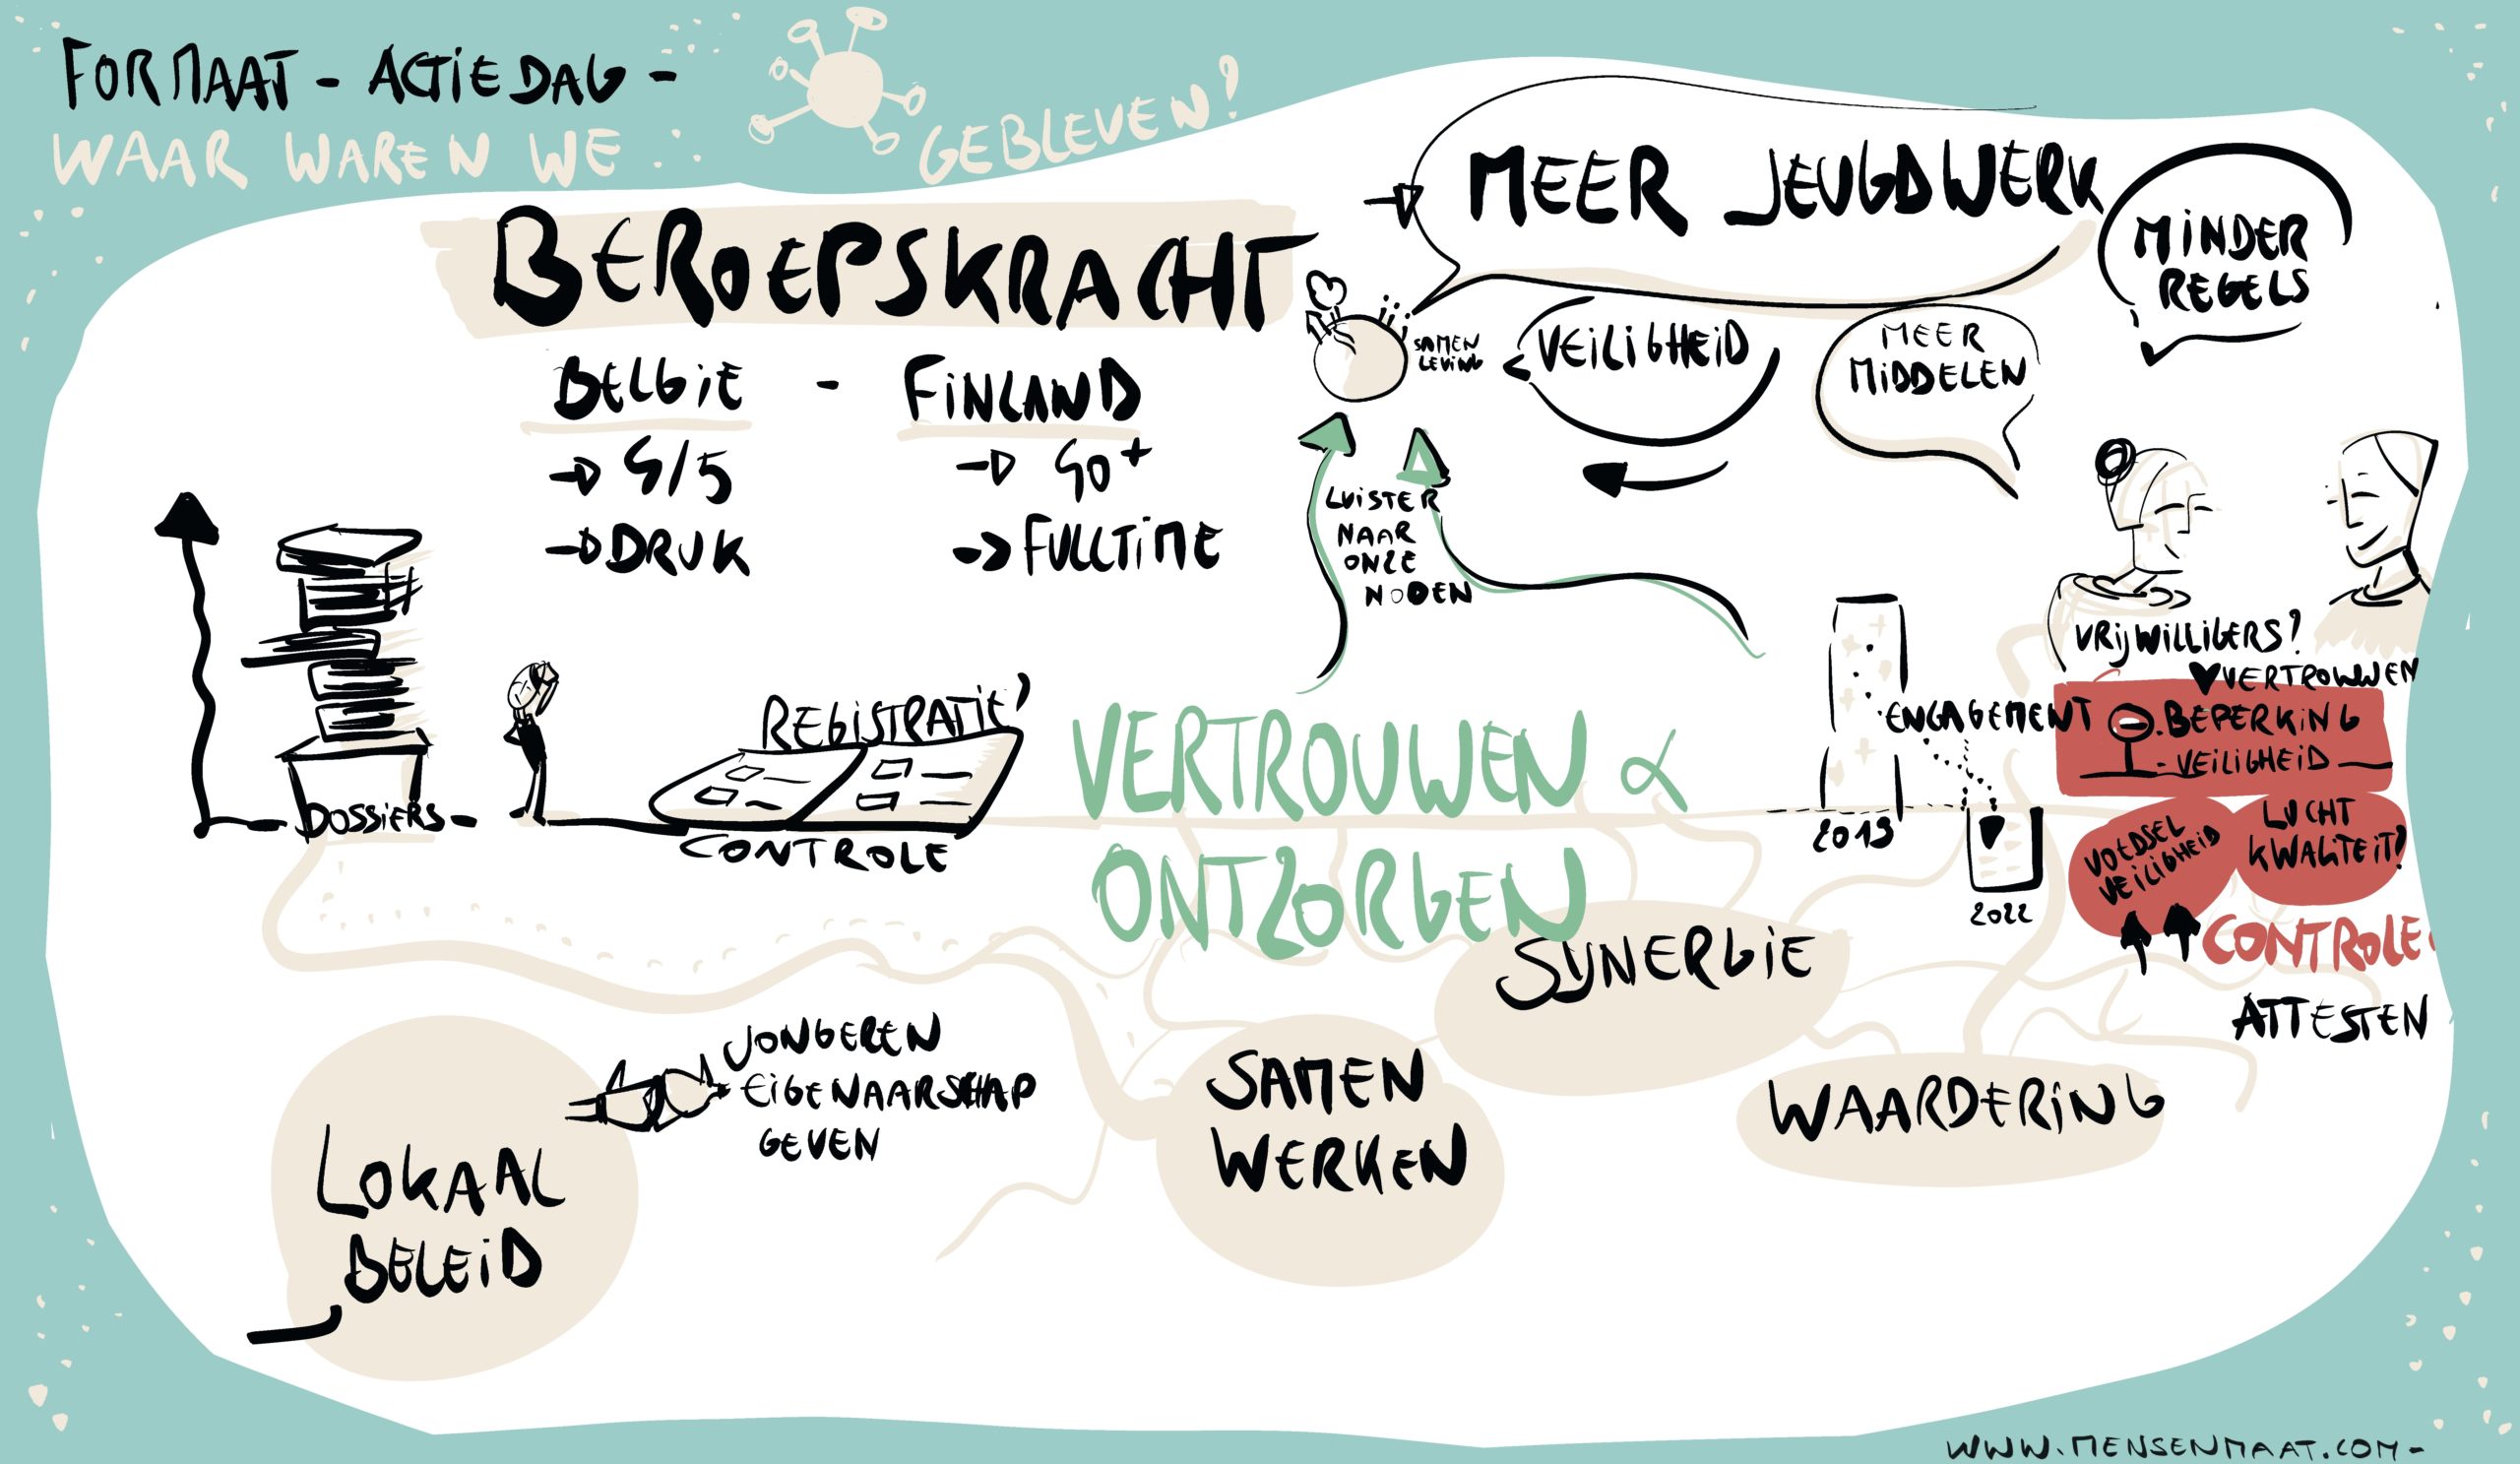 FORMAAT - ACTIEDAG -
WAAR WAREN WE : .
GEBLEVEN!
BEROEPSKRACHT
BELGIE - FINLAND
→ 4/5
→ DRUK
→ 40+
→ FULLTIME
→ MEER JEUGDWERK
MINDER
REGELS
SAMEN
LEVING
VEILIGHEID
MEER
MIDDELEN
LUISTER
NAAR
ONZE
NODEN
DOSSIERS
REGISTRATIE!
CONTROLE
VERTROUWEN &
ONTZORGEN
VRIJWILLIGERS?
♥ VERTROUWEN
ENGAGEMENT
2019
2022
. BEPERKING
- VEILIGHEID
VOEDSEL
VEILIGHEID
LUCHT
KWALITEIT!
CONTROLE
ATTESTEN
SYNERGIE
JONGEREN
EIGENAARSCHAP
GEVEN
LOKAAL
BELEID
SAMEN
WERKEN
WAARDERING
WWW.MENSENMAAT.COM -